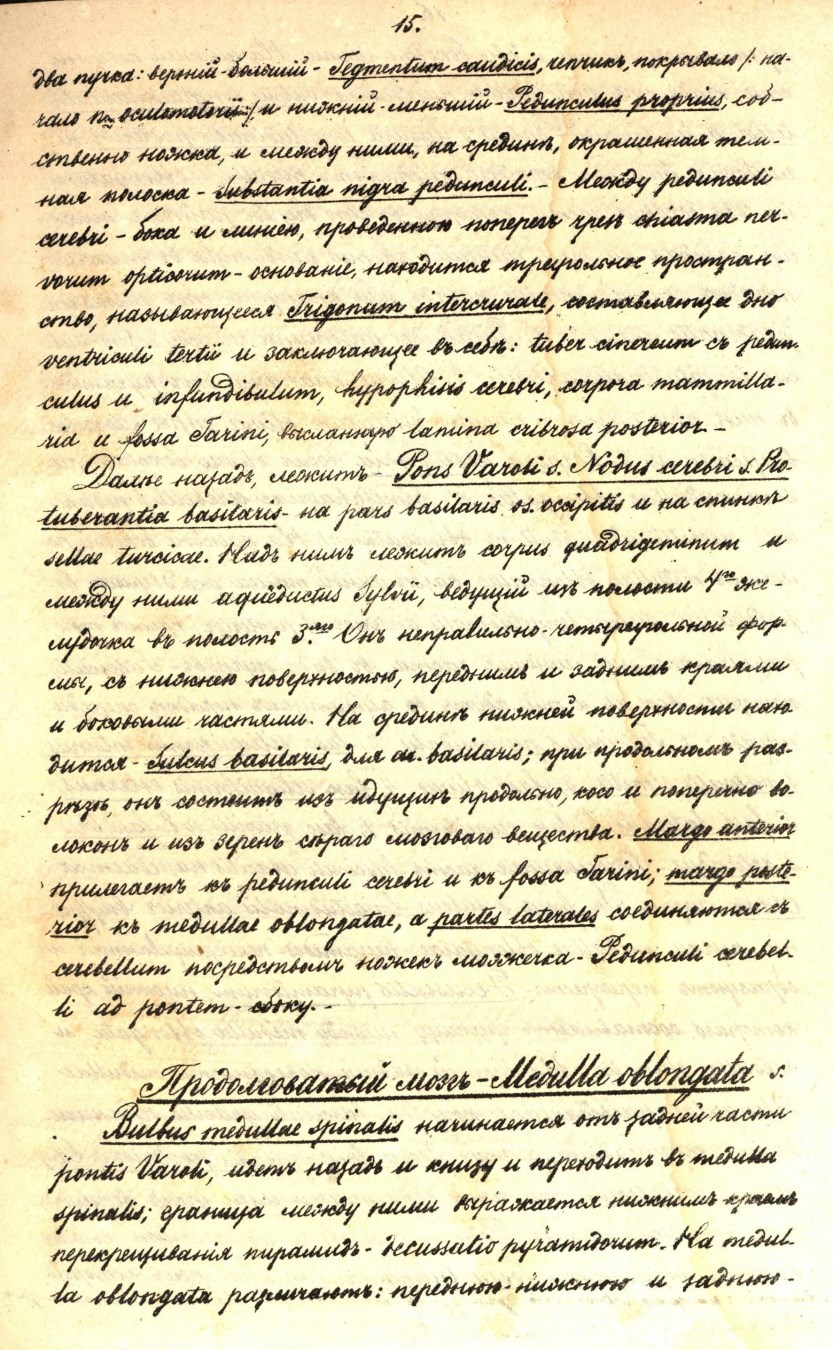 15.
два пучка: верхній-большій- Tegmentum caudicis, чепчикъ, покрывало /: на-
чало n. oculomotorii :/ и нижній-меньшій- Pedunculus proprius, соб-
ственно ножка, и между ними, на срединѣ, окрашенная тем-
ная полоска - Substantia nigra pedunculi. - Между pedunculi
cerebri - бока и линіею, проведенною поперегъ чрезъ chiasma ner-
vorum opticorum - основаніе, находится треугольное простран-
ство, называющееся Trigonum intercrurale, составляющее дно
ventriculi tertii и заключающее въ себѣ: tuber cinereum съ pedun-
culus и infundibulum, hypophisis cerebri, corpora mammilla-
ria и fossa Tarini, lamina cribrosa posterior. -
Далѣе назадъ, лежитъ - Pons Varoli s. Nodus cerebri s. Pro-
tuberantia basilaris - на pars basilaris os. occipitis и на спинкѣ
sellae turcicae. Надъ нимъ лежитъ corpus quadrigeminum и
между ними aquëductus Sylvii, ведущій изъ полости 4го же-
лудочка въ полость 3.его Онъ неправильно-четыреугольной фор-
мы, съ нижнею поверхностью, переднимъ и заднимъ краями
и боковыми частями. На срединѣ нижней поверхности нахо-
дится - Sulcus basilaris, для a. basilaris; при продольномъ раз-
рѣзѣ, онъ состоитъ изъ идущихъ продольно, косо и поперечно во-
локонъ и изъ зеренъ сѣраго мозговаго вещества. Margo anterior
прилегаетъ къ pedunculi cerebri и къ fossa Tarini; margo poste-
rior къ medullae oblongatae, а partes laterales соединяются съ
cerebellum посредствомъ ножекъ мозжечка - Pedunculi cerebel-
li ad pontem - сбоку. -
Продолговатый мозгъ - Medulla oblongata s.
Bulbus medullae spinalis начинается отъ задней части
pontis Varoli, идетъ назадъ и книзу и переходитъ въ medulla
spinalis; граница между ними выражается нижнимъ краемъ
перекрещиванія пирамидъ - decussatio pyramidorum. На medul-
la oblongata различаютъ: переднюю-нижнюю и заднюю-